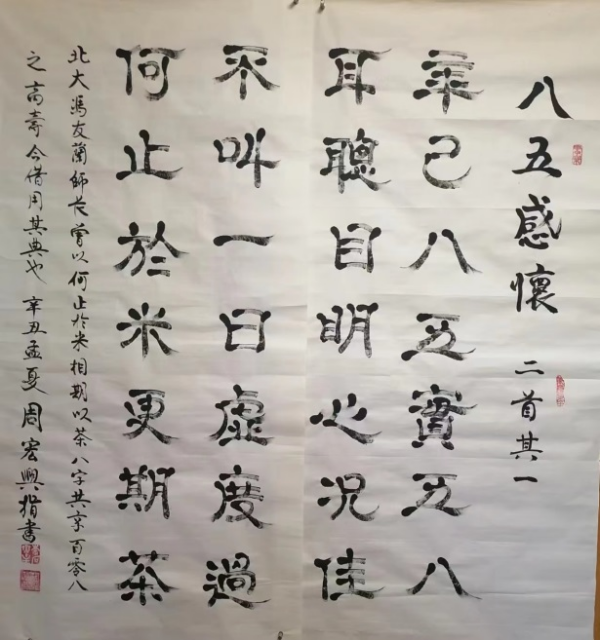 八五感懷 二首其一
年己八五實五八
耳聰目明心況佳
不叫一日虛度過
何止於米更期茶
北大馮友蘭師長曾以何止於米相期以茶八字共享百零八
之高壽今借用其典也 辛丑孟夏周宏興書